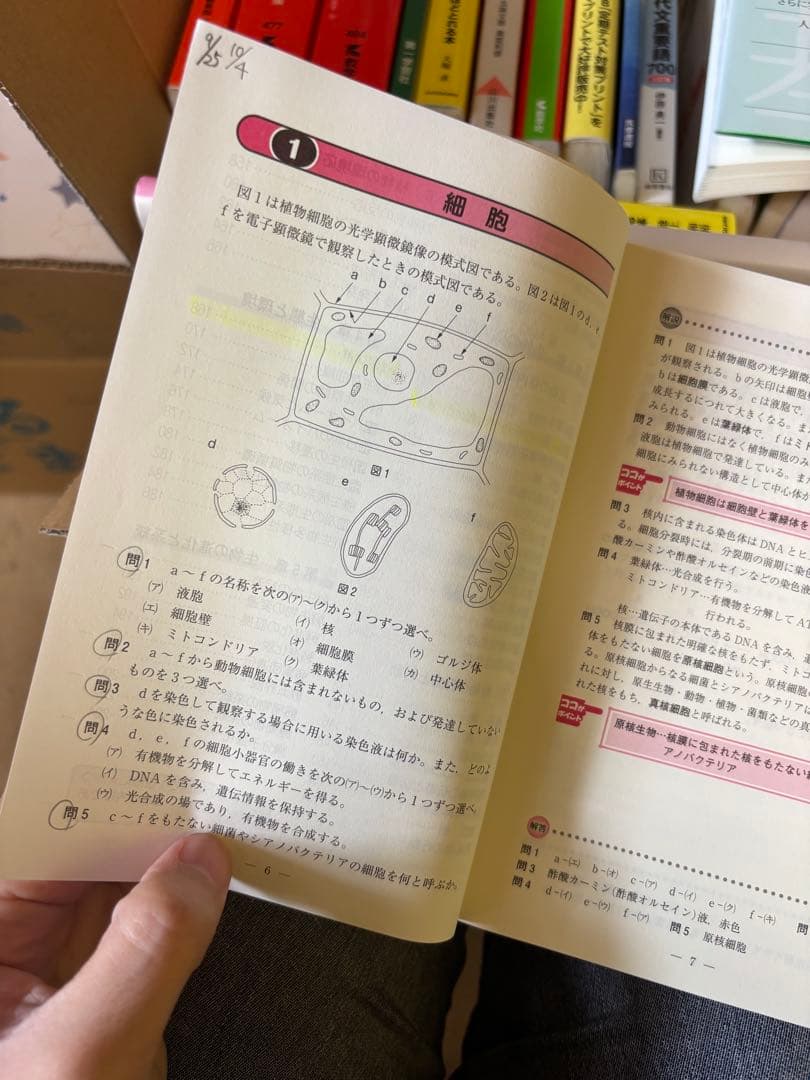 9/25 10/4
1 細胞
図1は植物細胞の光学顕微鏡像の模式図である。図2は図1のd, e
fを電子顕微鏡で観察したときの模式図である。
a b c d e f
図1
d
e
f
図2
問1 a～fの名称を次の(ア)～(ク)から1つずつ選べ。
(ア) 液胞 (イ) 核 (ウ) ゴルジ体
(エ) 細胞壁 (オ) 細胞膜 (カ) 中心体
(キ) ミトコンドリア (ク) 葉緑体
問2 a～fから動物細胞には含まれないもの，および発達していない
ものを3つ選べ。
問3 dを染色して観察する場合に用いる染色液は何か。また，どのよ
うな色に染色されるか。
問4 d，e，fの細胞小器官の働きを次の(ア)～(ウ)から1つずつ選べ。
(ア) 有機物を分解してエネルギーを得る。
(イ) DNAを含み，遺伝情報を保持する。
(ウ) 光合成の場であり，有機物を合成する。
問5 c～fをもたない細菌やシアノバクテリアの細胞を何と呼ぶか。
― 6 ―
解説
問1 図1は植物細胞の光学顕微
が観察される。bの矢印は細胞
bは細胞膜である。cは液胞で，
成長するにつれて大きくなる。ま
みられる。eは葉緑体で，fはミ
問2 動物細胞にはなく植物細胞のみ
液胞は植物細胞で発達している。また
細胞にみられない構造として中心体
ココがポイント
植物細胞は細胞壁と葉緑体を
問3 核内に含まれる染色体はDNAとヒ
る。細胞分裂時には，分裂期の前期に染色
酸カーミンや酢酸オルセインなどの染色液
問4 葉緑体…光合成を行う。
ミトコンドリア…有機物を分解してAT
行われる。
核…遺伝子の本体であるDNAを含み，
問5 核膜に包まれた明確な核をもたず，ミトコ
体をもたない細胞を原核細胞という。原核細胞
る。原核細胞からなる細菌とシアノバクテリア
れに対し，原生生物・動物・植物・菌類などの真
れた核をもち，真核細胞と呼ばれる。
ココがポイント
原核生物…核膜に包まれた核をもたない
アノバクテリア
解答
問1 a-(エ) b-(オ) c-(ア) d-(イ) e-(ク) f-(キ) 問
問3 酢酸カーミン(酢酸オルセイン)液，赤色
問4 d-(イ) e-(ウ) f-(ア) 問5 原核細胞
― 7 ―